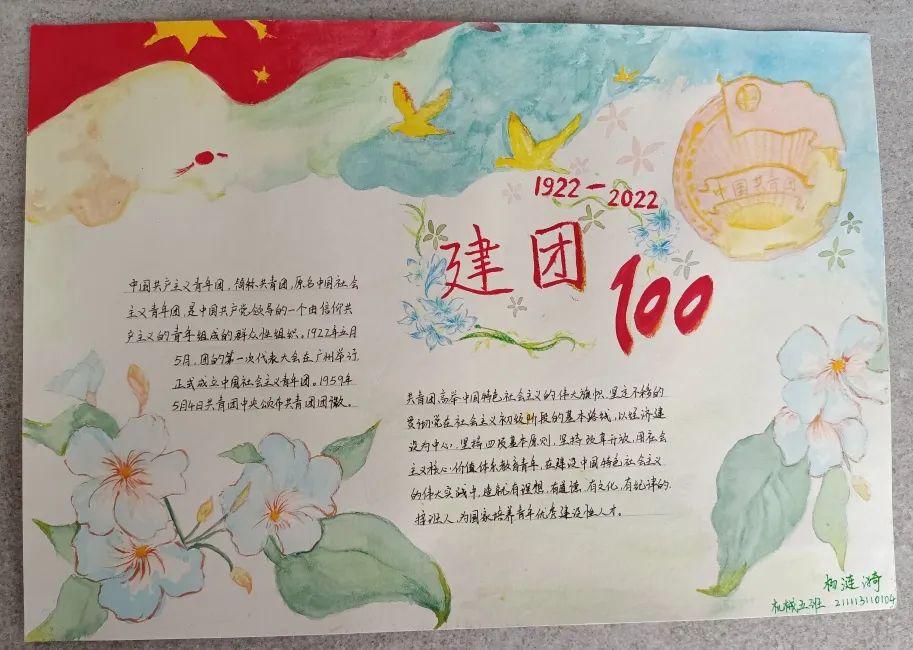 中国共青团
1922-2022
建团
100
中国共产主义青年团，简称共青团，原名中国社会
主义青年团，是中国共产党领导的一个由信仰共
产主义的青年组成的群众性组织。1922年五月
5月，团的第一次代表大会在广州举行
正式成立中国社会主义青年团。1959年
5月4日共青团中央颁布共青团团徽。
共青团高举中国特色社会主义的伟大旗帜，坚定不移的
贯彻党在社会主义初级阶段的基本路线，以经济建
设为中心，坚持四项基本原则，坚持改革开放，用社会
主义核心价值体系教育青年，在建设中国特色社会主义
的伟大实践中，造就有理想，有道德，有文化，有纪律的
接班人，为国家培养青年优秀建设性人才。
杨涟漪
机械五班 211113110104